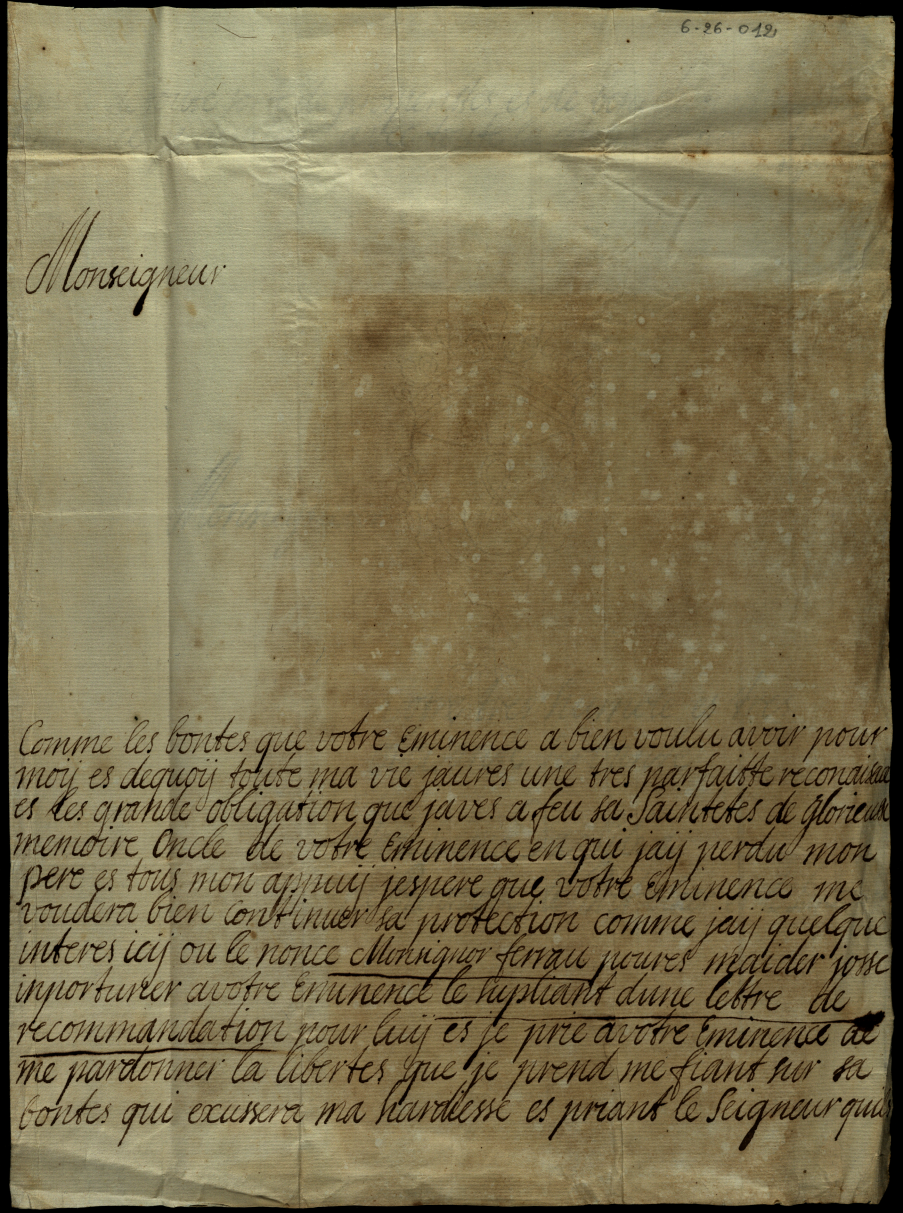 6-26-012
Monseigneur
Comme les bontes que votre Eminence a bien voulu avoir pour
moij es dequoij toute ma vie jaures une tres parfaitte reconaisca
es les grande obligation que javes a feu sa Saintetes de glorieuse
memoire Oncle de votre Eminence en qui jaij perdu mon
pere es tous mon appuij jespere que votre Eminence me
voudera bien continuer sa protection comme jaij quelque
interes icij ou le nonce Monsignor ferrau poures maider josse
inportuner avotre Eminence le supliant dune lettre de
recommandation pour luij es je prie avotre Eminence de
me pardonner la libertes que je prend me fiant sur sa
bontes qui excussera ma hardiesse es priant le Seigneur quil